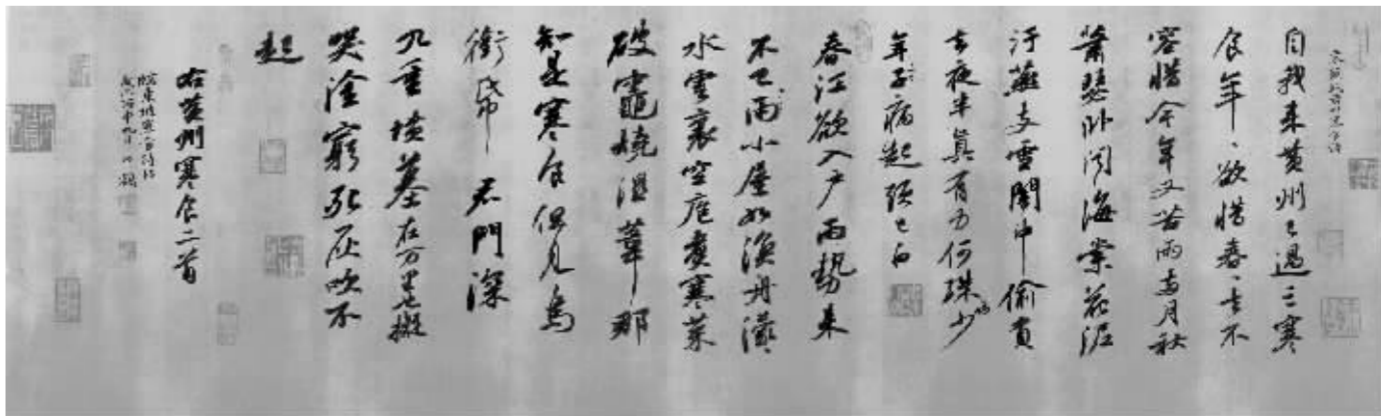 自我来黄州已過三寒
食年、欲惜春、去不
容惜今年又苦雨两月秋
蕭瑟卧聞海棠花泥
汙燕支雪闇中偷負
去夜半真有力何殊病少
年子病起頭已白
春江欲入户雨勢来
不已雨小屋如漁舟濛
水雲裏空庖煮寒菜
破竈燒濕葦那
知是寒食但見烏
銜帋君門深
九重墳墓在万里也擬
哭塗窮死灰吹不
起
右黄州寒食二首